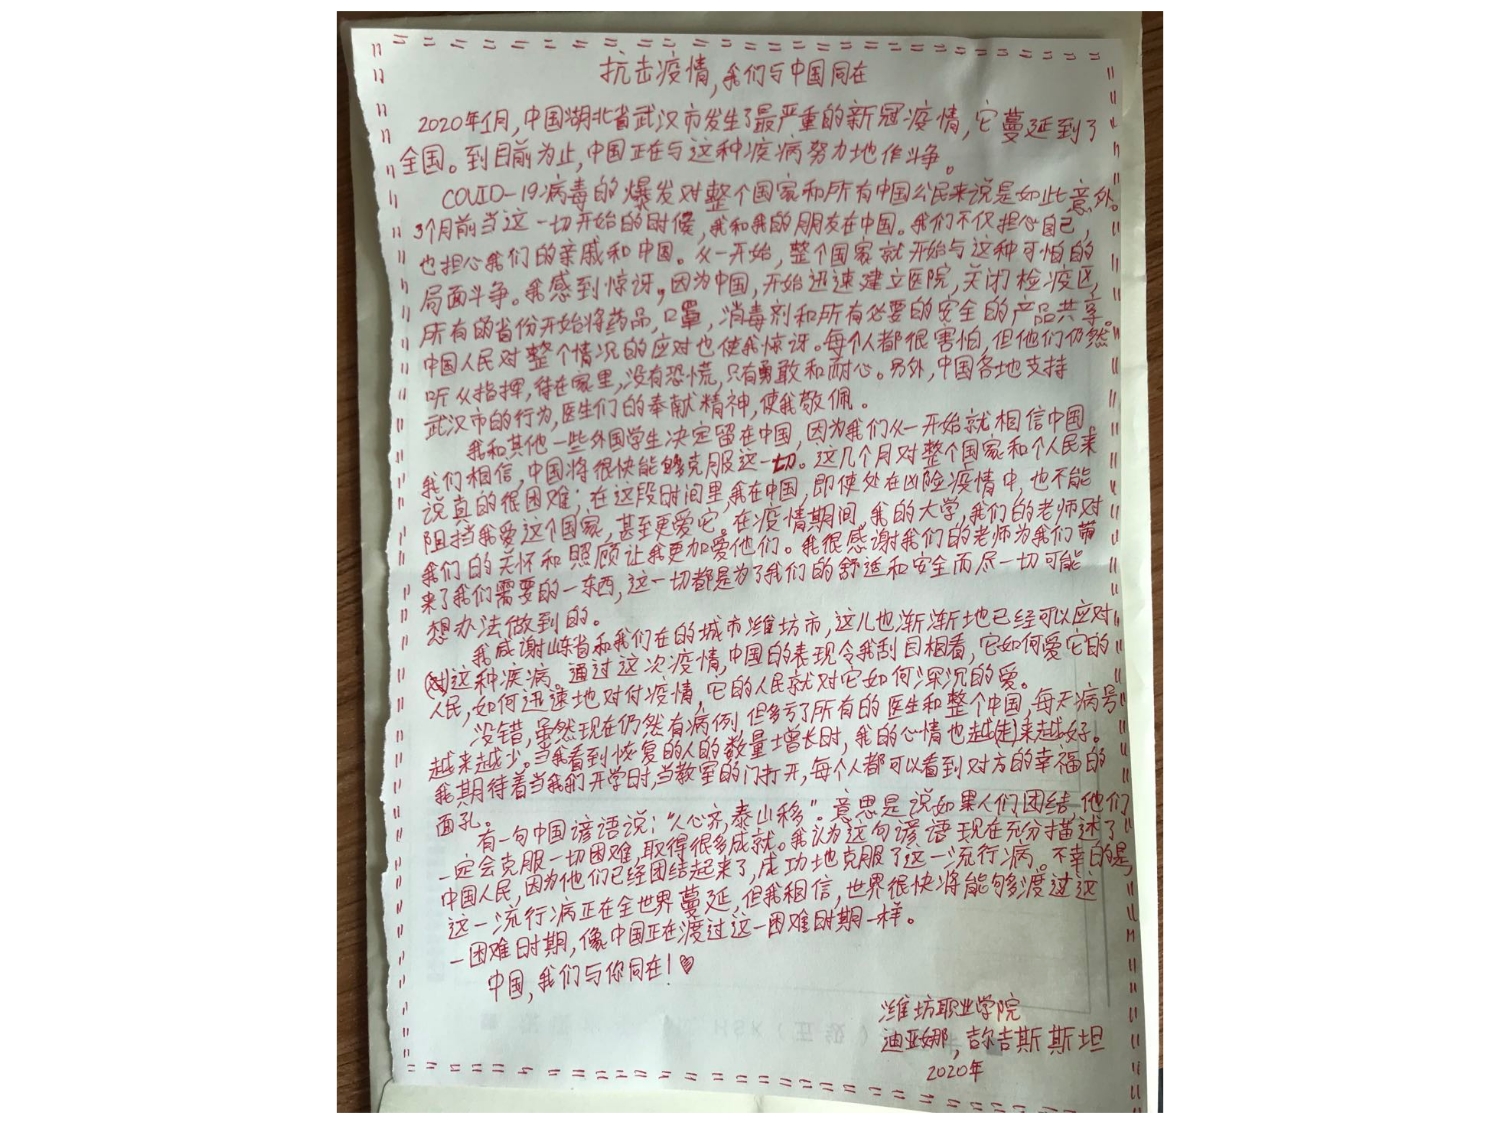 抗击疫情,我们与中国同在
2020年1月,中国湖北省武汉市发生了最严重的新冠疫情,它蔓延到了
全国。到目前为止,中国正在与这种疾病努力地作斗争。
COVID-19病毒的爆发对整个国家和所有中国公民来说是如此意外。
3个月前当这一切开始的时候,我和我的朋友在中国。我们不仅担心自己,
也担心我们的亲戚和中国。从一开始,整个国家就开始与这种可怕的
局面斗争。我感到惊讶,因为中国,开始迅速建立医院,关闭检疫区,
所有的省份开始将药品,口罩,消毒剂和所有必要的安全的产品共享。
中国人民对整个情况的应对也使我惊讶。每个人都很害怕,但他们仍然
听从指挥,待在家里,没有恐慌,只有勇敢和耐心。另外,中国各地支持
武汉市的行为,医生们的奉献精神,使我敬佩。
我和其他一些外国学生决定留在中国,因为我们从一开始就相信中国,
我们相信,中国将很快能够克服这一切。这几个月对整个国家和个人民来
说真的很困难;在这段时间里,我在中国,即使处在凶险疫情中,也不能
阻挡我爱这个国家,甚至更爱它。在疫情期间,我的大学,我们的老师对
我们的关怀和照顾让我更加爱他们。我很感谢我们的老师为我们带
来了我们需要的一东西,这一切都是为了我们的舒适和安全而尽一切可能
想办法做到的。
我感谢山东省和我们在的城市潍坊市,这儿也渐渐地已经可以应对
对这种疾病。通过这次疫情,中国的表现令我刮目相看,它如何爱它的
人民,如何迅速地对付疫情,它的人民就对它如何深沉的爱。
没错,虽然现在仍然有病例,但多亏了所有的医生和整个中国,每天病号
越来越少。当我看到恢复的人的数量增长时,我的心情也越来越好。
我期待着当我们开学时,当教室的门打开,每个人都可以看到对方的幸福的
面孔。
有一句中国谚语说:“人心齐,泰山移”。意思是说如果人们团结,他们
一定会克服一切困难,取得很多成就。我认为这句谚语现在充分描述了
中国人民,因为他们已经团结起来了,成功地克服了这一流行病。不幸的是,
这一流行病正在全世界蔓延,但我相信,世界很快将能够渡过这
一困难时期,像中国正在渡过这一困难时期一样。
中国,我们与你同在!♥
潍坊职业学院
迪亚娜,吉尔吉斯斯坦
2020年